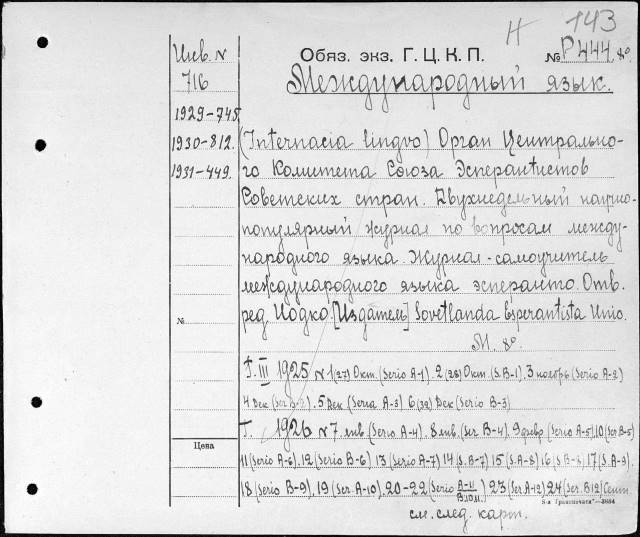 Н 143
Инв. N
716
1929-745
1930-812.
1931-449.
Обяз. экз. Г. Ц. К. П.
№ Р444. 8о.
Международный язык.
(Internacia lingvo) Орган Центрально-
го Комитета Союза Эсперантистов
Советских стран. Двухнедельный научно-
популярный журнал по вопросам между-
народного языка. Журнал-самоучитель
международного языка эсперанто. Отв.
ред Иодко. [Издатель] Sovetlanda Esperantista Unio.
М. 8о.
№
Г. III 1925 N 1(27) Окт. (Serio A-1). 2(28) Окт. (S. B-1). 3 ноябрь (Serio A-2)
4 Дек (Ser B-2). 5 Дек (Seria A-3) 6(32) Дек (Serio B-3)
Г. 1926 N 7. янв (Serio A-4). 8 янв. (Ser B-4). 9 февр (Serio A-5) 10 (Ser B-5)
Цена
11 (Serio A-6). 12 (Serio B-6) 13 (Serio A-7) 14 (S. B-7) 15 (S. A-8) 16 (S. B-8) 17 (S. A-9).
18 (Serio B-9). 19 (Ser. A-10). 20-22 (Serio A-11 B10M.) 23 (Ser A-12) 24 (Ser. B12) Сент.
3884
см. след. карт.